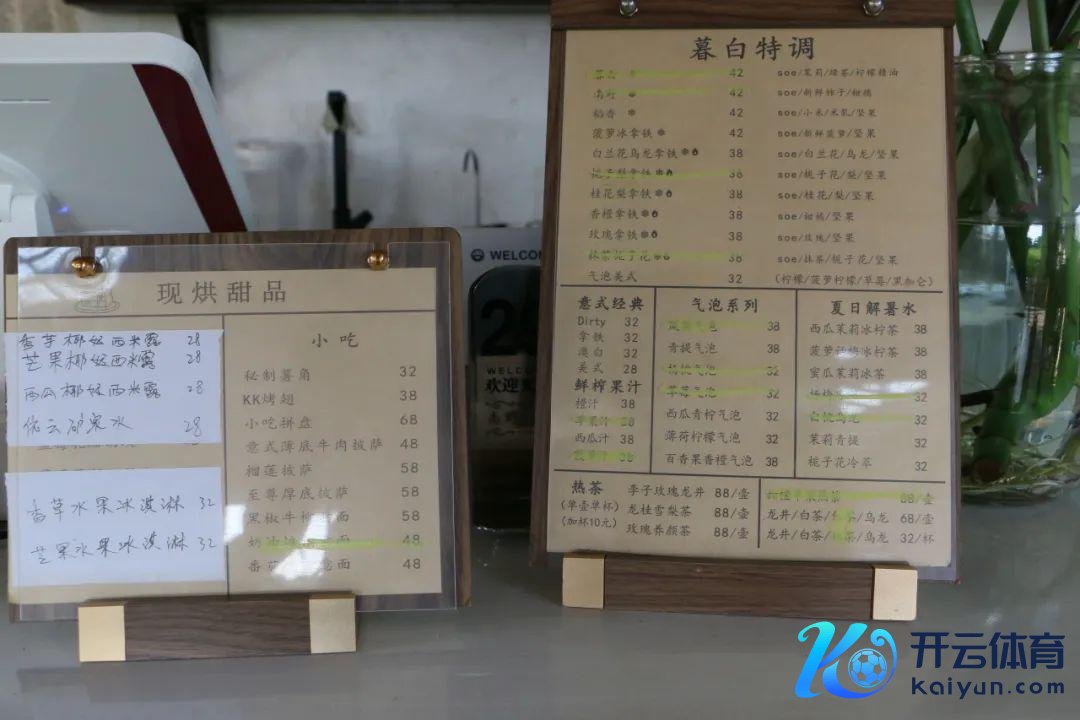 现烘甜品
香芋椰奶西米露 28
芒果椰奶西米露 28
西瓜椰奶西米露 28
依云矿泉水 28
香草水果冰淇淋 32
芒果水果冰淇淋 32
小吃
秘制薯角 32
KK烤翅 38
小吃拼盘 68
意式薄底牛肉披萨 48
榴莲披萨 58
至尊厚底披萨 58
黑椒牛 面 58
奶 面 48
番茄 意面 48
WELCOM
WELCOME
欢迎
暮白特调
42 soe/茉莉/绿茶/柠檬精油
42 soe/新鲜柚子/柑橘
稻香 42 soe/小米/米乳/坚果
菠萝冰拿铁 42 soe/新鲜菠萝/坚果
白兰花乌龙拿铁 38 soe/白兰花/乌龙/坚果
栀子梨拿铁 38 soe/栀子花/梨/坚果
桂花梨拿铁 38 soe/桂花/梨/坚果
香橙拿铁 38 soe/甜橘/坚果
玫瑰拿铁 38 soe/玫瑰/坚果
抹茶栀子花 38 soe/抹茶/栀子花/坚果
气泡美式 32 (柠檬/菠萝柠檬/草莓/黑加仑)
意式经典
Dirty 32
拿铁 32
澳白 32
美式 28
鲜榨果汁
橙汁 38
苹果汁 28
西瓜汁 38
菠萝汁 38
气泡系列
气泡 38
青提气泡 38
杨桃气泡 32
草莓气泡 32
西瓜青柠气泡 32
薄荷柠檬气泡 32
百香果香橙气泡 38
夏日解暑水
西瓜茉莉冰柠茶 38
菠萝 冰柠茶 38
蜜瓜茉莉冰茶 38
32
白桃乌龙 32
茉莉青提 32
栀子花冷萃 32
热茶
(单壶单杯)
(加杯10元)
李子玫瑰龙井 88/壶
龙桂雪梨茶 88/壶
玫瑰养颜茶 88/壶
苹果热茶 88/壶
龙井/白茶/ /乌龙 68/壶
龙井/白茶/ /乌龙 32/杯
开云体育
kaiyun.com